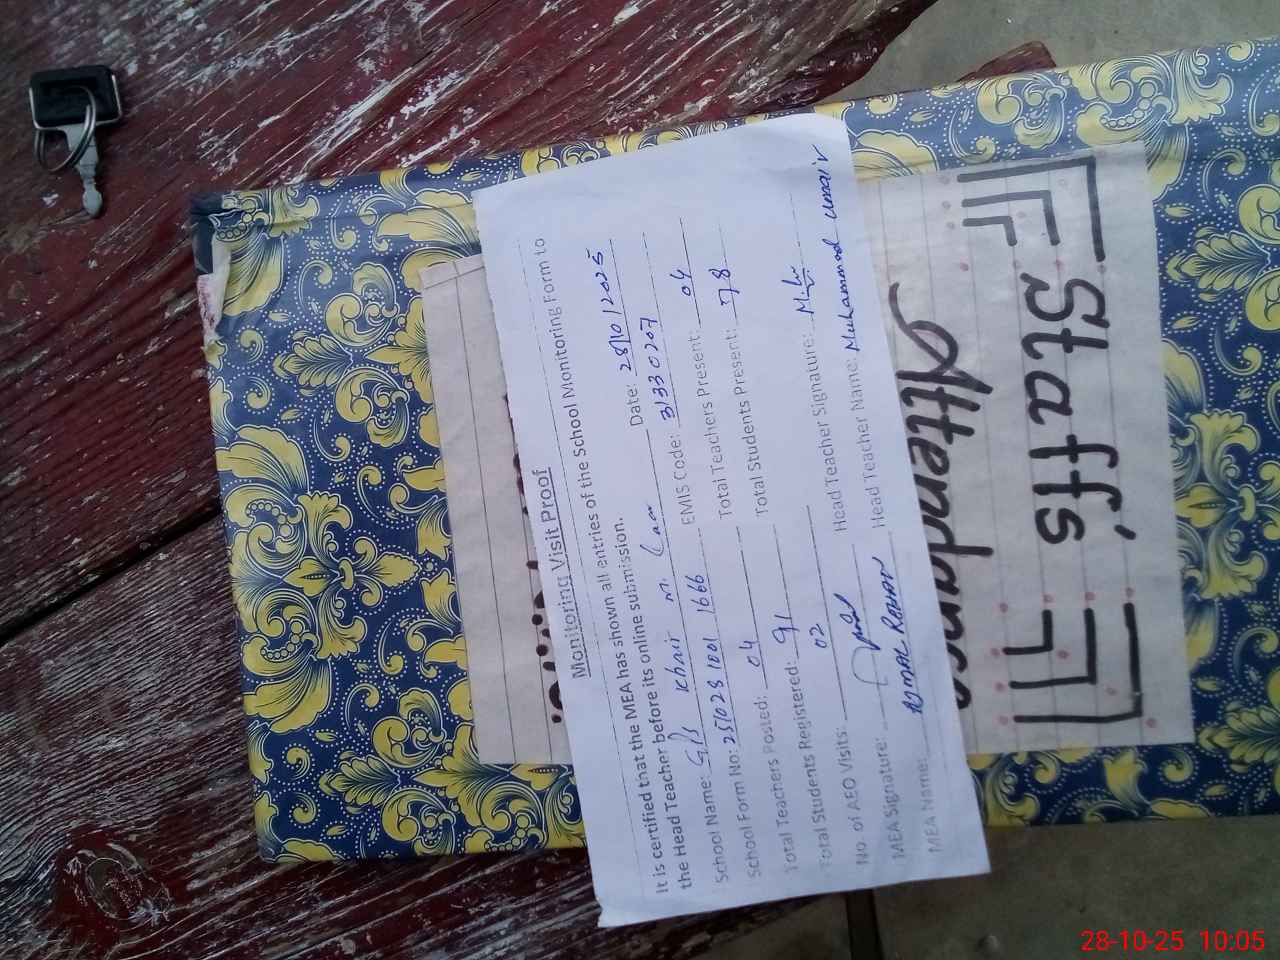 Monitoring Visit Proof
It is certified that the MEA has shown all entries of the School Monitoring Form to
the Head Teacher before its online submission.
School Name: GPS Khair M. Date: 28/10/2025
School Form No: 251028 1001 1666 EMIS Code: 31330207
Total Teachers Posted: 04 Total Teachers Present: 04
Total Students Registered: 91 Total Students Present: 78
No. of AEO Visits: 02
MEA Signature: Head Teacher Signature:
MEA Name: Head Teacher Name: Muhammad Umair
Staff's
Attendance
28-10-25 10:05